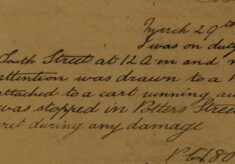 March 29th
I was on duty
South Street at 12 am and
attention was drawn to a
attached to a cart running
was stopped in Potters Street
out during any damage